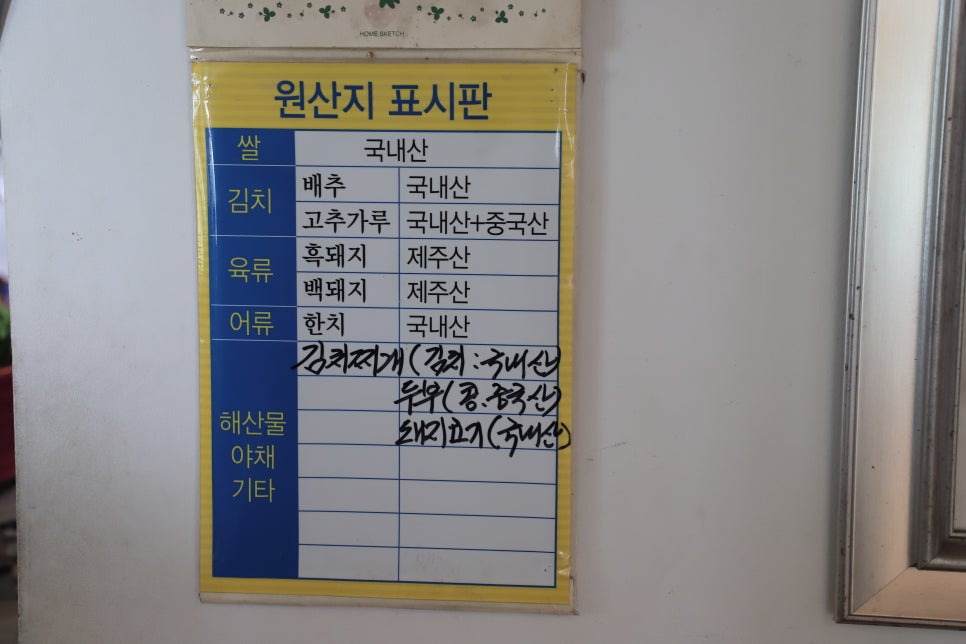 HOME SKETCH
원산지 표시판
쌀 국내산
김치 배추 국내산
고추가루 국내산+중국산
육류 흑돼지 제주산
백돼지 제주산
어류 한치 국내산
김치찌개(김치:국내산)
두부(콩:중국산)
돼지고기(국내산)
해산물
야채
기타